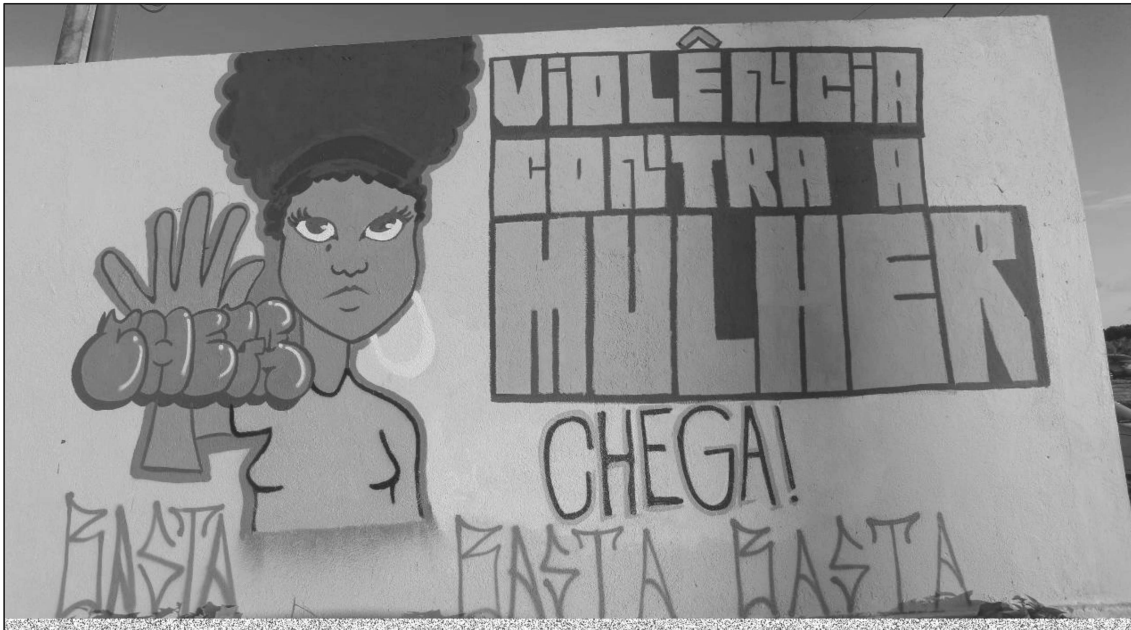 VIOLÊNCIA
CONTRA A
MULHER
CHEGA!
BASTA BASTA BASTA